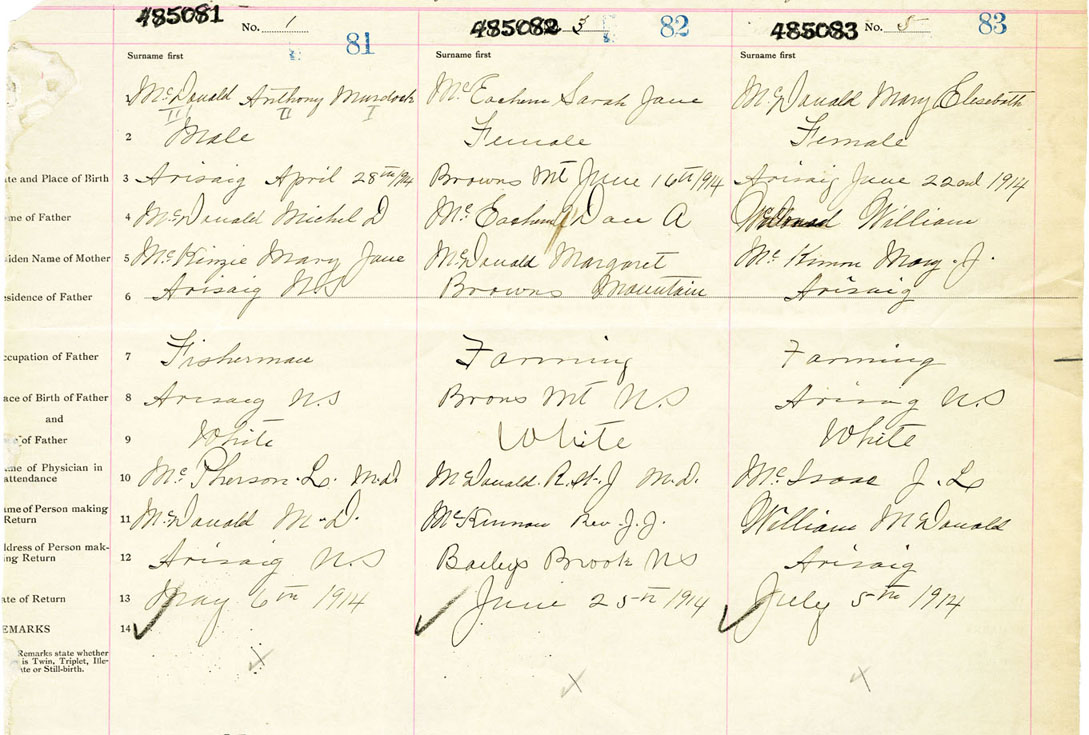 485081 No. 1 81
485082 3 82
485083 No. 5 83
Surname first
Surname first
Surname first
1 McDonald Anthony Murdock
McEachern Sarah Jane
McDonald Mary Elesebath
II II I
2 Male
Female
Female
ate and Place of Birth 3 Arisaig April 28th/14
Browns Mt June 16th 1914
Arisaig June 22nd 1914
me of Father 4 McDonald Michel D
McEachern Dan A
William
aiden Name of Mother 5 McKinzie Mary Jane
McDonald Margaret
McKinnon Mary. J.
esidence of Father 6 Arisaig N.S
Browns Mountain
Arisaig
ccupation of Father 7 Fisherman
Farming
Farming
ace of Birth of Father 8 Arisaig N.S
Brons Mt N.S
Arisaig N.S
and
of Father 9 White
White
White
me of Physician in
attendance 10 McPherson. L. M.D.
McDonald. R. St. J M.D.
McIsaac J. L
ame of Person making
Return 11 McDonald M. D.
McKinnon Rev. J. J.
William McDonald
ddress of Person mak-
ing Return 12 Arisaig N.S
Baileys Brook NS
Arisaig
ate of Return 13 May 6th 1914
June 25th 1914
July 5th 1914
EMARKS 14
Remarks state whether
is Twin, Triplet, Ille-
ate or Still-birth.